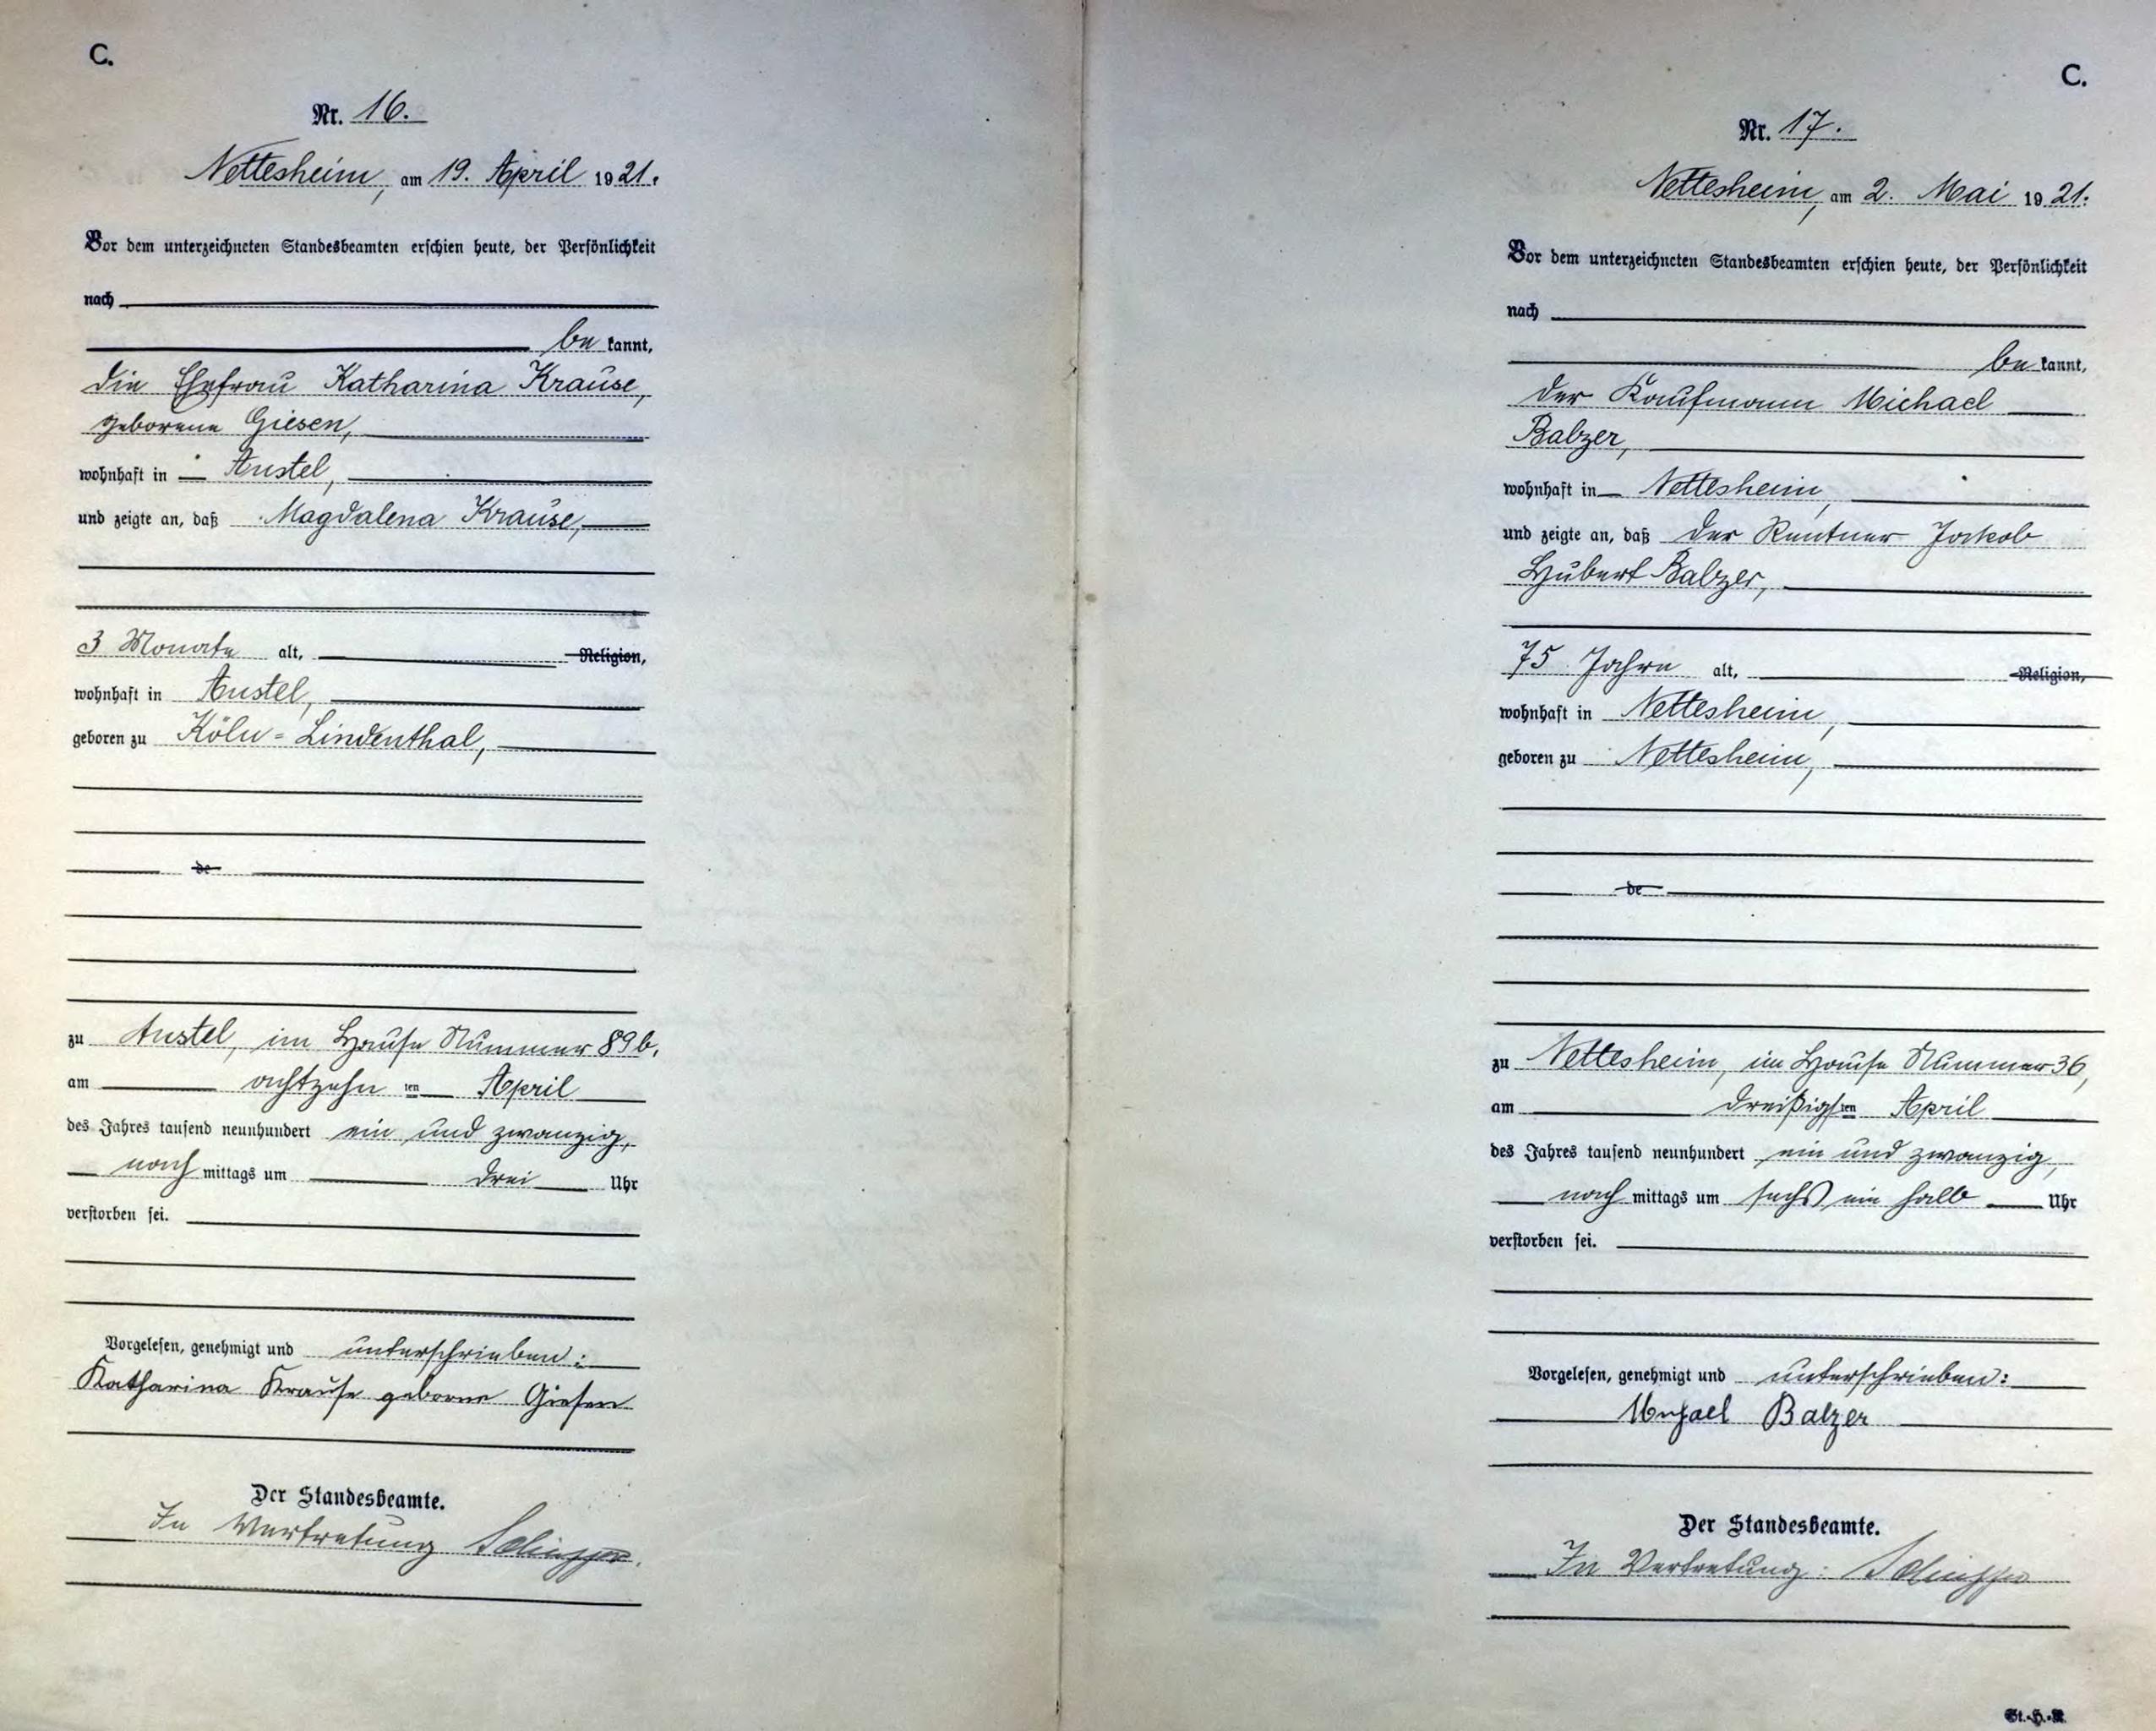 C.
Nr. 16.
Nettesheim, am 19. April 1921.
Vor dem unterzeichneten Standesbeamten erschien heute, der Persönlichkeit
nach
be kannt,
die Ehefrau Katharina Krause,
geborene Giesen,
wohnhaft in Anstel,
und zeigte an, daß Magdalena Krause,
3 Monate alt, Religion,
wohnhaft in Anstel,
geboren zu Köln-Lindenthal,
de
zu Anstel, im Hause Nummer 89b,
am achtzehn ten April
des Jahres tausend neunhundert ein und zwanzig,
nach mittags um drei Uhr
verstorben sei.
Vorgelesen, genehmigt und unterschrieben:
Katharina Krause geborene Giesen
Der Standesbeamte.
In Vertretung
C.
Nr. 17.
Nettesheim, am 2. Mai 1921.
Vor dem unterzeichneten Standesbeamten erschien heute, der Persönlichkeit
nach
be kannt,
der Kaufmann Michael
Balzer,
wohnhaft in Nettesheim,
und zeigte an, daß der Rentner Jakob
Hubert Balzer,
75 Jahre alt, Religion,
wohnhaft in Nettesheim,
geboren zu Nettesheim,
de
zu Nettesheim, im Hause Nummer 36,
am dreißigsten April
des Jahres tausend neunhundert ein und zwanzig,
nach mittags um sechs ein halb Uhr
verstorben sei.
Vorgelesen, genehmigt und unterschrieben:
Michael Balzer
Der Standesbeamte.
In Vertretung:
St.-H.-R.